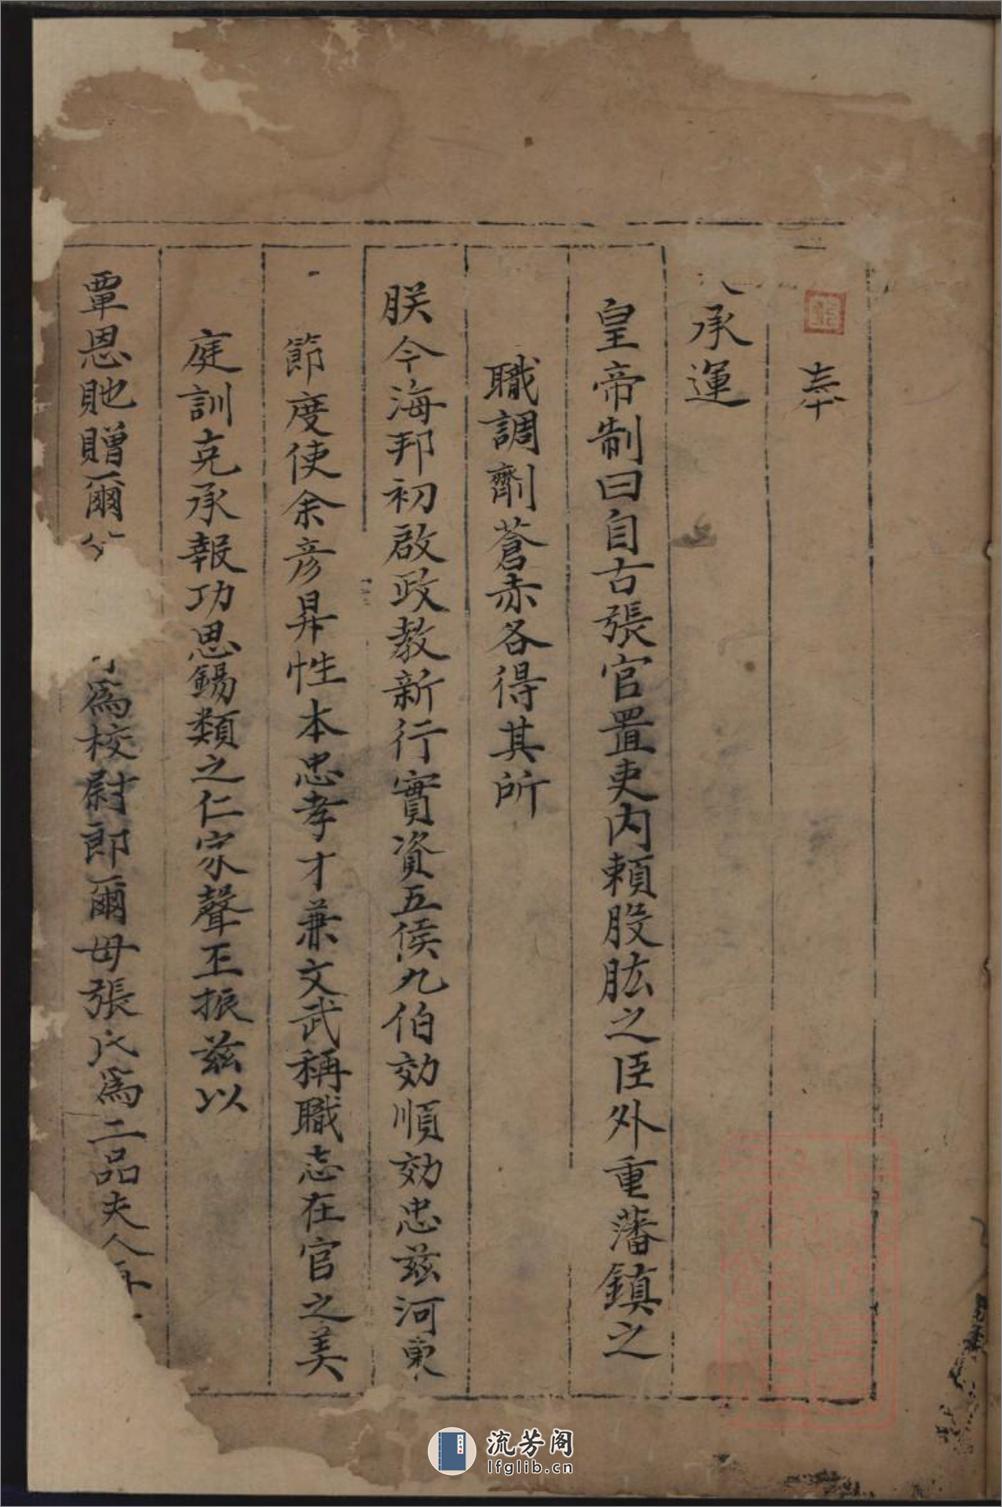 奉
承運
皇帝制曰自古張官置吏内賴股肱之臣外重藩鎮之
職調劑蒼赤各得其所
朕今海邦初啟政教新行實資五侯九伯効順効忠兹河東
節度使余彦昇性本忠孝才兼文武稱職志在官之美
庭訓克承報功思錫類之仁家聲丕振兹以
覃恩貤贈爾
為校尉郎爾母張氏為二品夫人
流芳阁
lfglib.cn